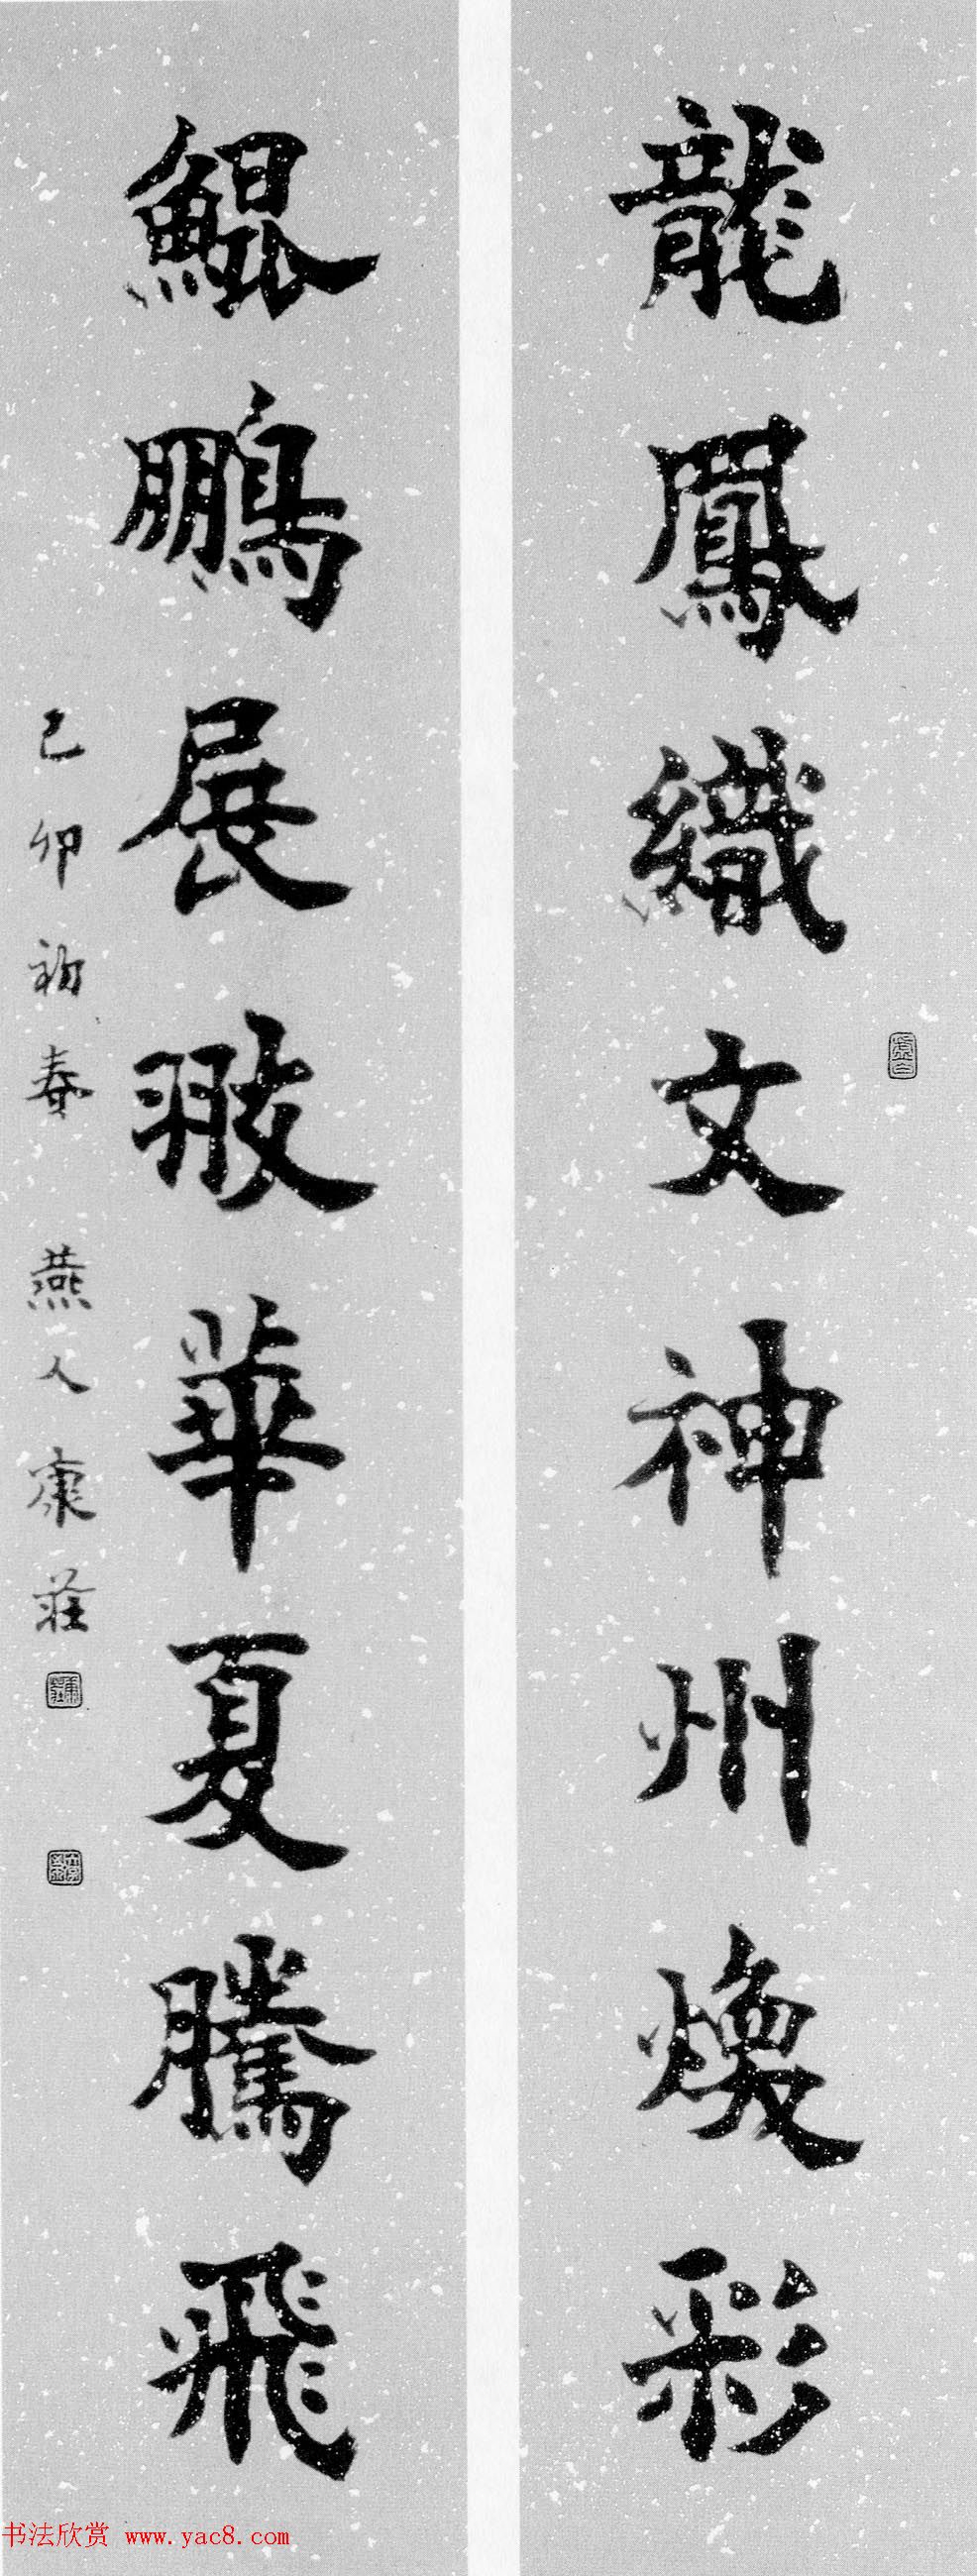 龍鳳織文神州煥彩
鯤鵬展翮華夏騰飛
己卯初春 燕人康莊
书法欣赏 www.yac8.com